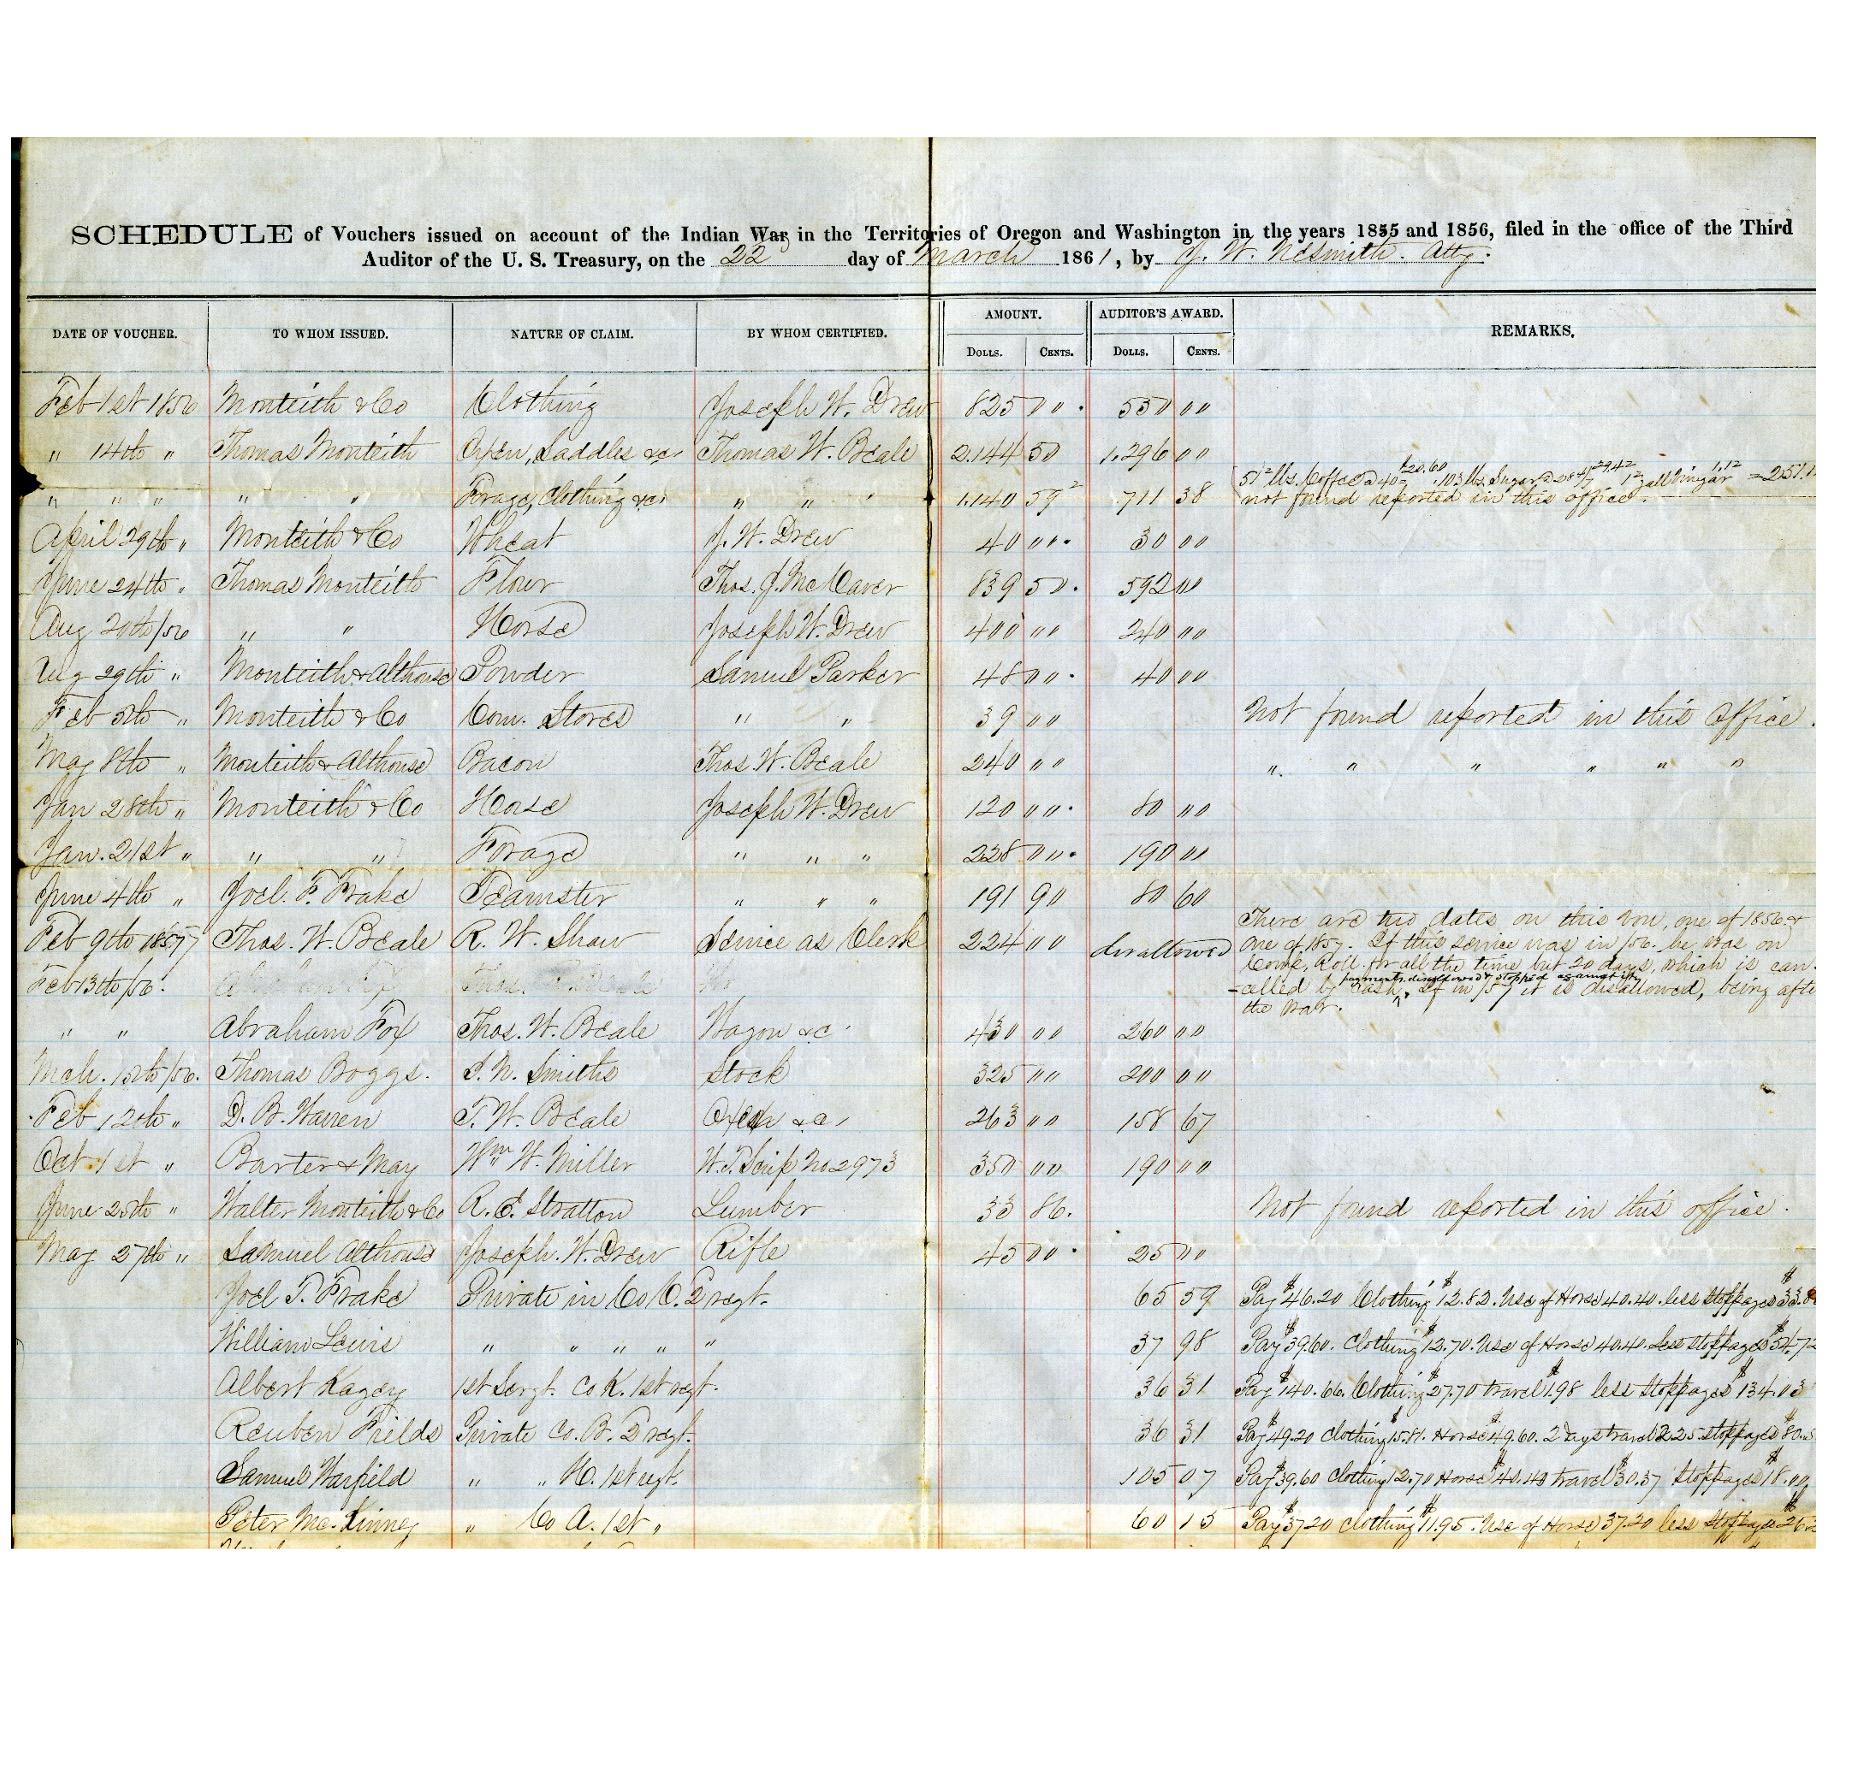 SCHEDULE of Vouchers issued on account of the Indian War in the Territories of Oregon and Washington in the years 1855 and 1856, filed in the office of the Third
Auditor of the U. S. Treasury, on the 22d day of March 1861, by J. W. Nesmith. Atty.
DATE OF VOUCHER. TO WHOM ISSUED. NATURE OF CLAIM. BY WHOM CERTIFIED. AMOUNT. AUDITOR'S AWARD. REMARKS.
DOLLS. CENTS. DOLLS. CENTS.
Feb 1st 1856 Monteith & Co Clothing Joseph W. Drew 825 00 550 00
" 14th " Thomas Monteith Oxen, Saddles &c Thomas W. Beale 2.144 50 1.296 00
51 lbs. Coffee @ 40 $20.60 . 103 lbs. Sugar @ gall Vinegar 1.12
" " " " " Forage, Clothing &c " " " 1.140 59 711 38 not found reported in this office.
April 29th " Monteith & Co Wheat J. W. Drew 40 00 30 00
June 24th " Thomas Monteith Flour Thos. J. McCaver 839 50 592 00
Aug 20th /56 " " Horse Joseph W. Drew 400 00 240 00
Aug 29th " Monteith & Althouse Powder Samuel Parker 48 00 40 00
Feb 5th " Monteith & Co Com. Stores " " 39 00 Not found reported in this Office.
May 8th " Monteith & Althouse Bacon Thos. W. Beale 240 00 " " " " " "
Jan 28th " Monteith & Co Horse Joseph W. Drew 120 00 80 00
Jan. 21st " " " Forage " " " 228 00 190 00
June 4th " Joel. F. Frake Teamster " " " 191 90 80 60
Feb 9th 1857 Thos. W. Beale R. W. Shaw Service as Clerk 224 00 disallowed There are two dates on this Vou, one of 1856 &
one of 1857. If this service was in /56. he was on
Comp. Roll for all the time but 20 days, which is can-
payments disallowed & stopped against
Feb 13th /56. -celled by Cash, If in /57 it is disallowed, being afte
the War.
" " Abraham Fox Thos. W. Beale Wagon &c 430 00 260 00
Mch. 15th /56. Thomas Boggs. S. N. Smiths Stock 325 00 200 00
Feb 12th " D. B. Warren T. W. Beale Oxen &c 263 00 158 67
Oct 1st " Barter & May Wm W. Miller W. T. Scrip No 2973 350 00 190 00
June 25th " Walter Monteith & Co R. E. Stratton Lumber 33 86. Not found reported in this office.
May 27th " Samuel Althouse Joseph. W. Drew Rifle 45 00 25 00
Joel T. Frake Private in Co C. 2 regt. 65 59 Pay $46.20 Clothing $12.82. Use of Horse 40.40. less stoppages $33.8
William Lewis " " " " " 37 98 Pay $39.60. Clothing $12.70. Use of Horse 40.40. Less Stoppages $54.72
Albert Kagey 1st Sergt. Co K. 1st regt. 36 31 Pay $140.66. Clothing $27.70 travel $1.98 less Stoppages $134.03
Reuben Fields Private Co. B. 2 regt. 36 31 Pay $49.20 Clothing $15.81. Horse $49.60. 2 Days travel 2.25 stoppages $80.5
Samuel Warfield " " H. 1st regt. 105 07 Pay $39.60 Clothing 12.70 Horse $40.40 travel $30.37 Stoppages $18.00
Peter Mc. Kinney " Co A. 1st " 60 15 Pay $37.20 Clothing $11.95. Use of Horse 37.20 less stoppages 26.2